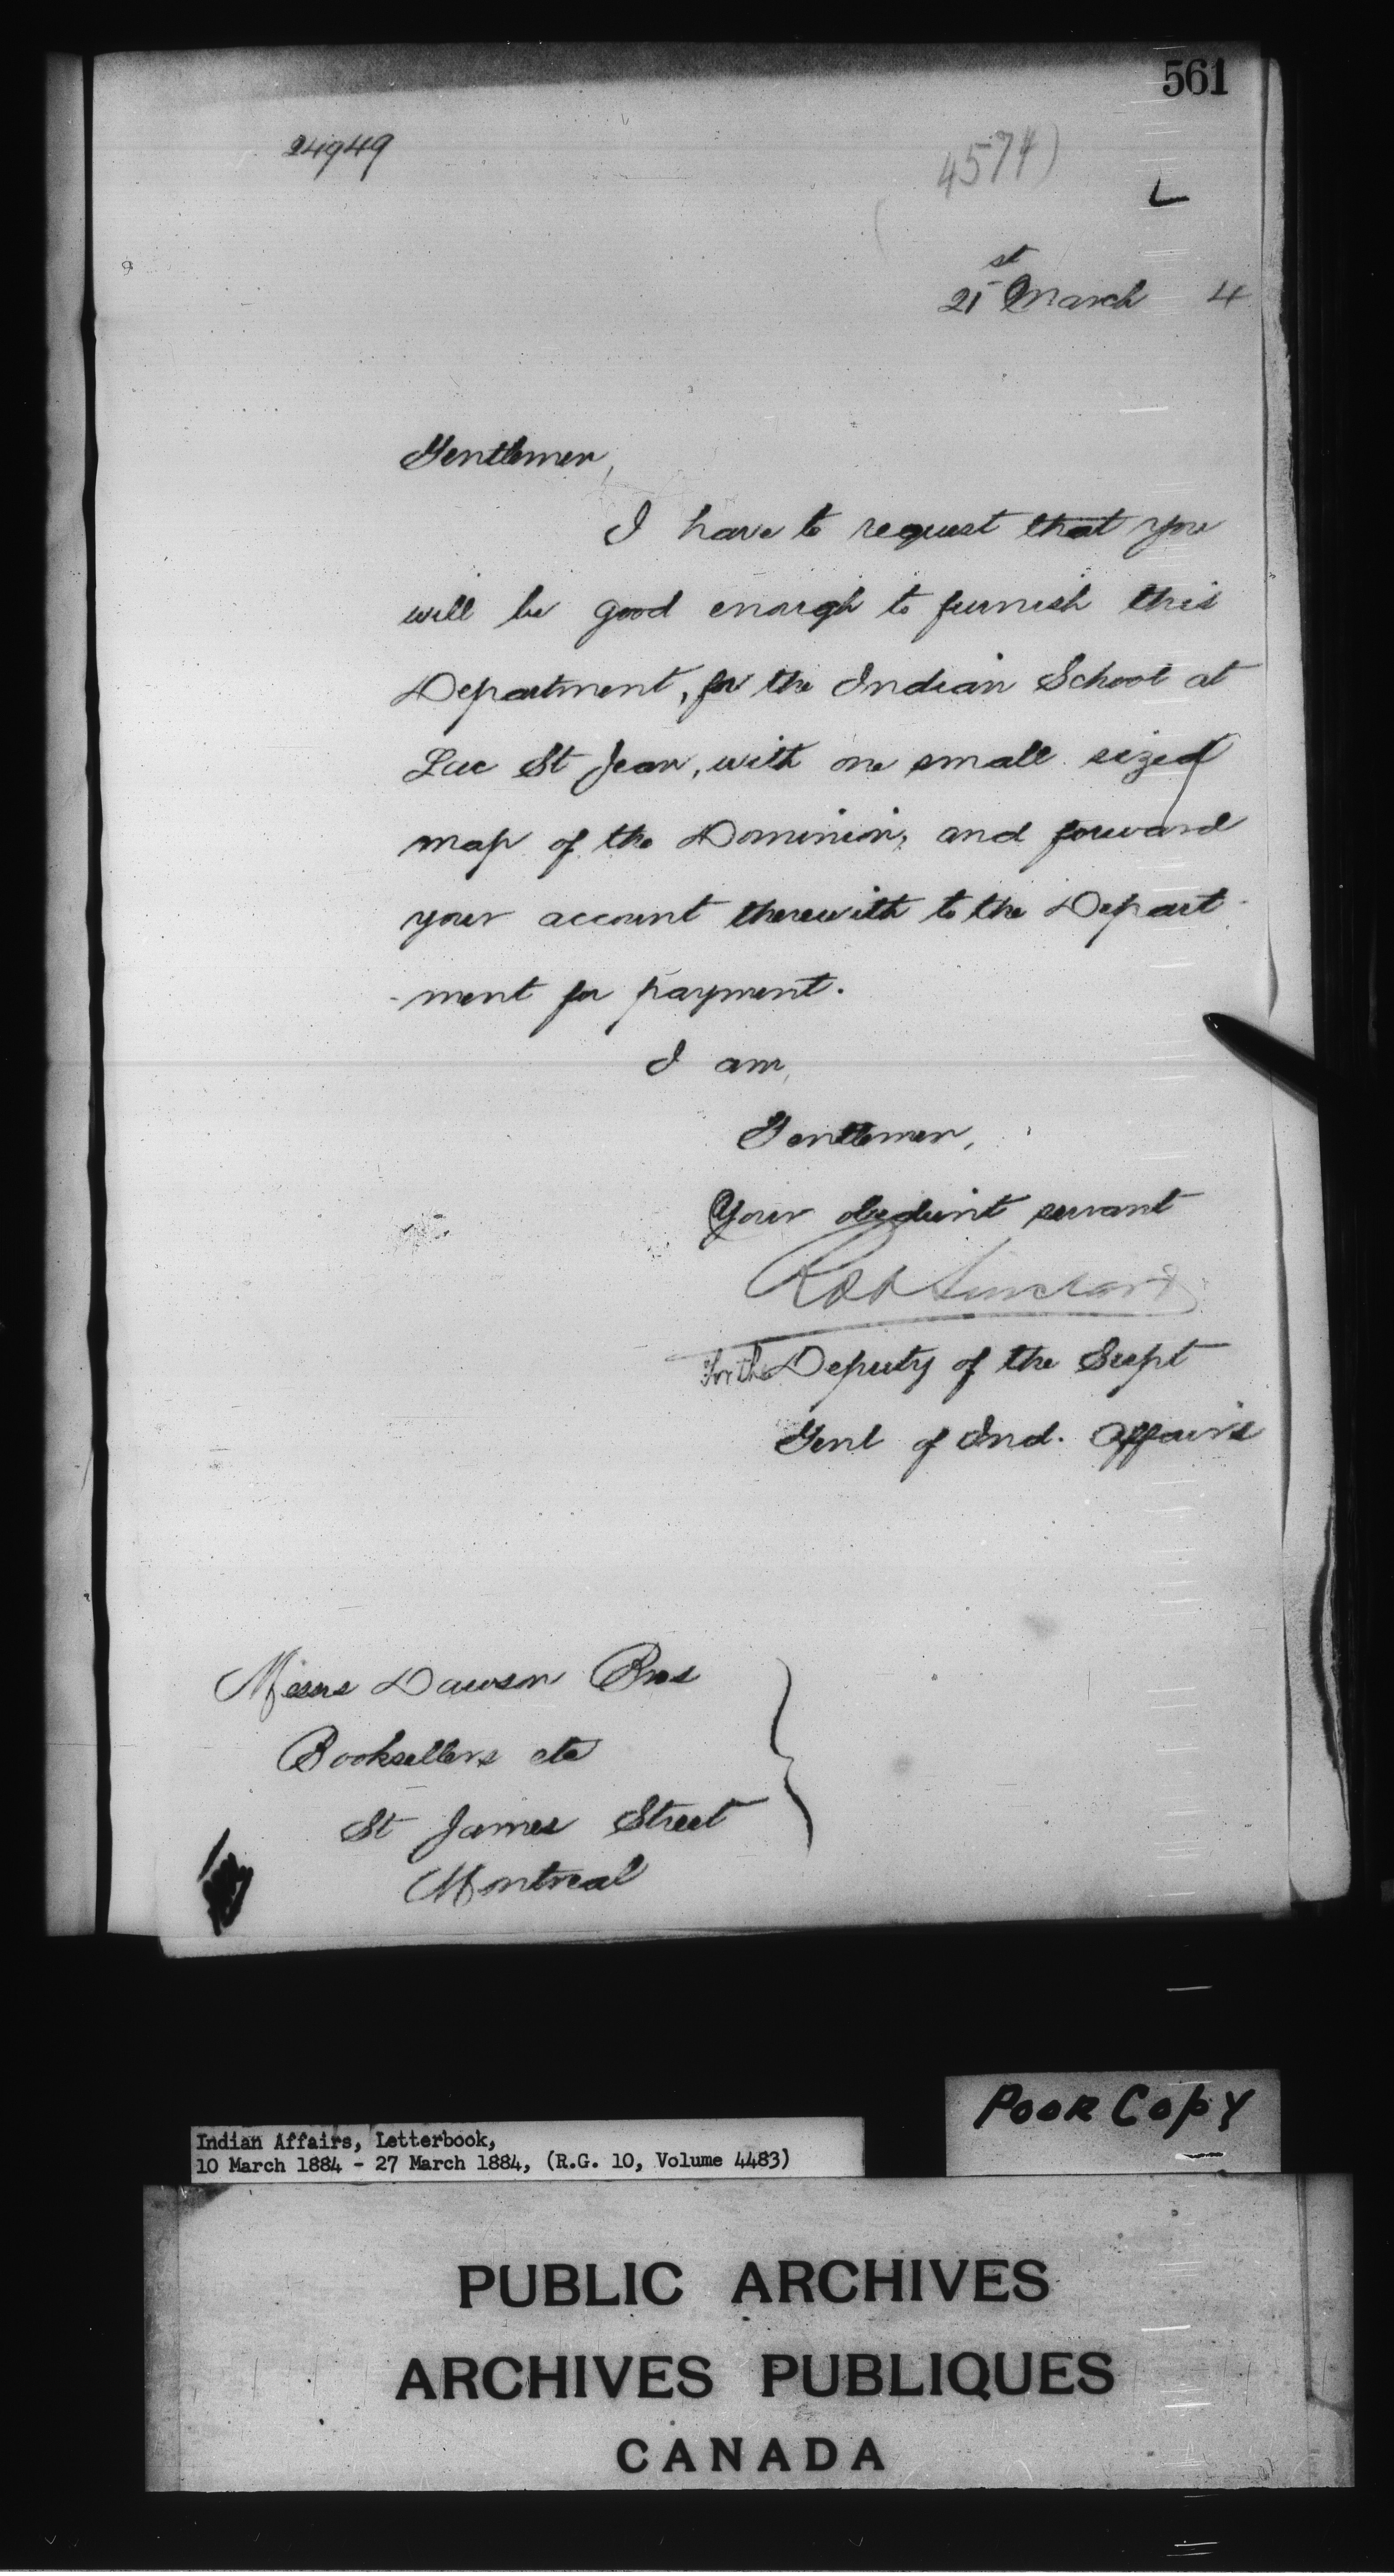 561
24949
4574)
L
21st March 4
Gentlemen,
I have to request that you
will be good enough to furnish this
Department, for the Indian School at
Lac St Jean, with one small sized
map of the Dominion, and forward
your account therewith to the Depart-
-ment for payment.
I am,
Gentlemen,
Your obedient servant
Sinclair
For the Deputy of the Supt
Genl of Ind. Affairs
Messrs Dawson Bros
Booksellers etc
St James Street
Montreal
POOR COPY
Indian Affairs, Letterbook,
10 March 1884 - 27 March 1884, (R.G. 10, Volume 4483)
PUBLIC ARCHIVES
ARCHIVES PUBLIQUES
CANADA